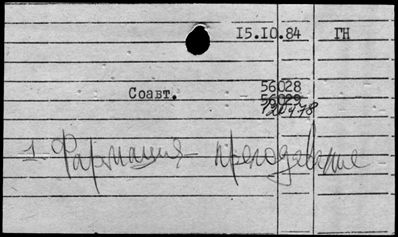 15.10.84 ГН
56028
Соавт. 56029
120478
1. Фармация - преподавание